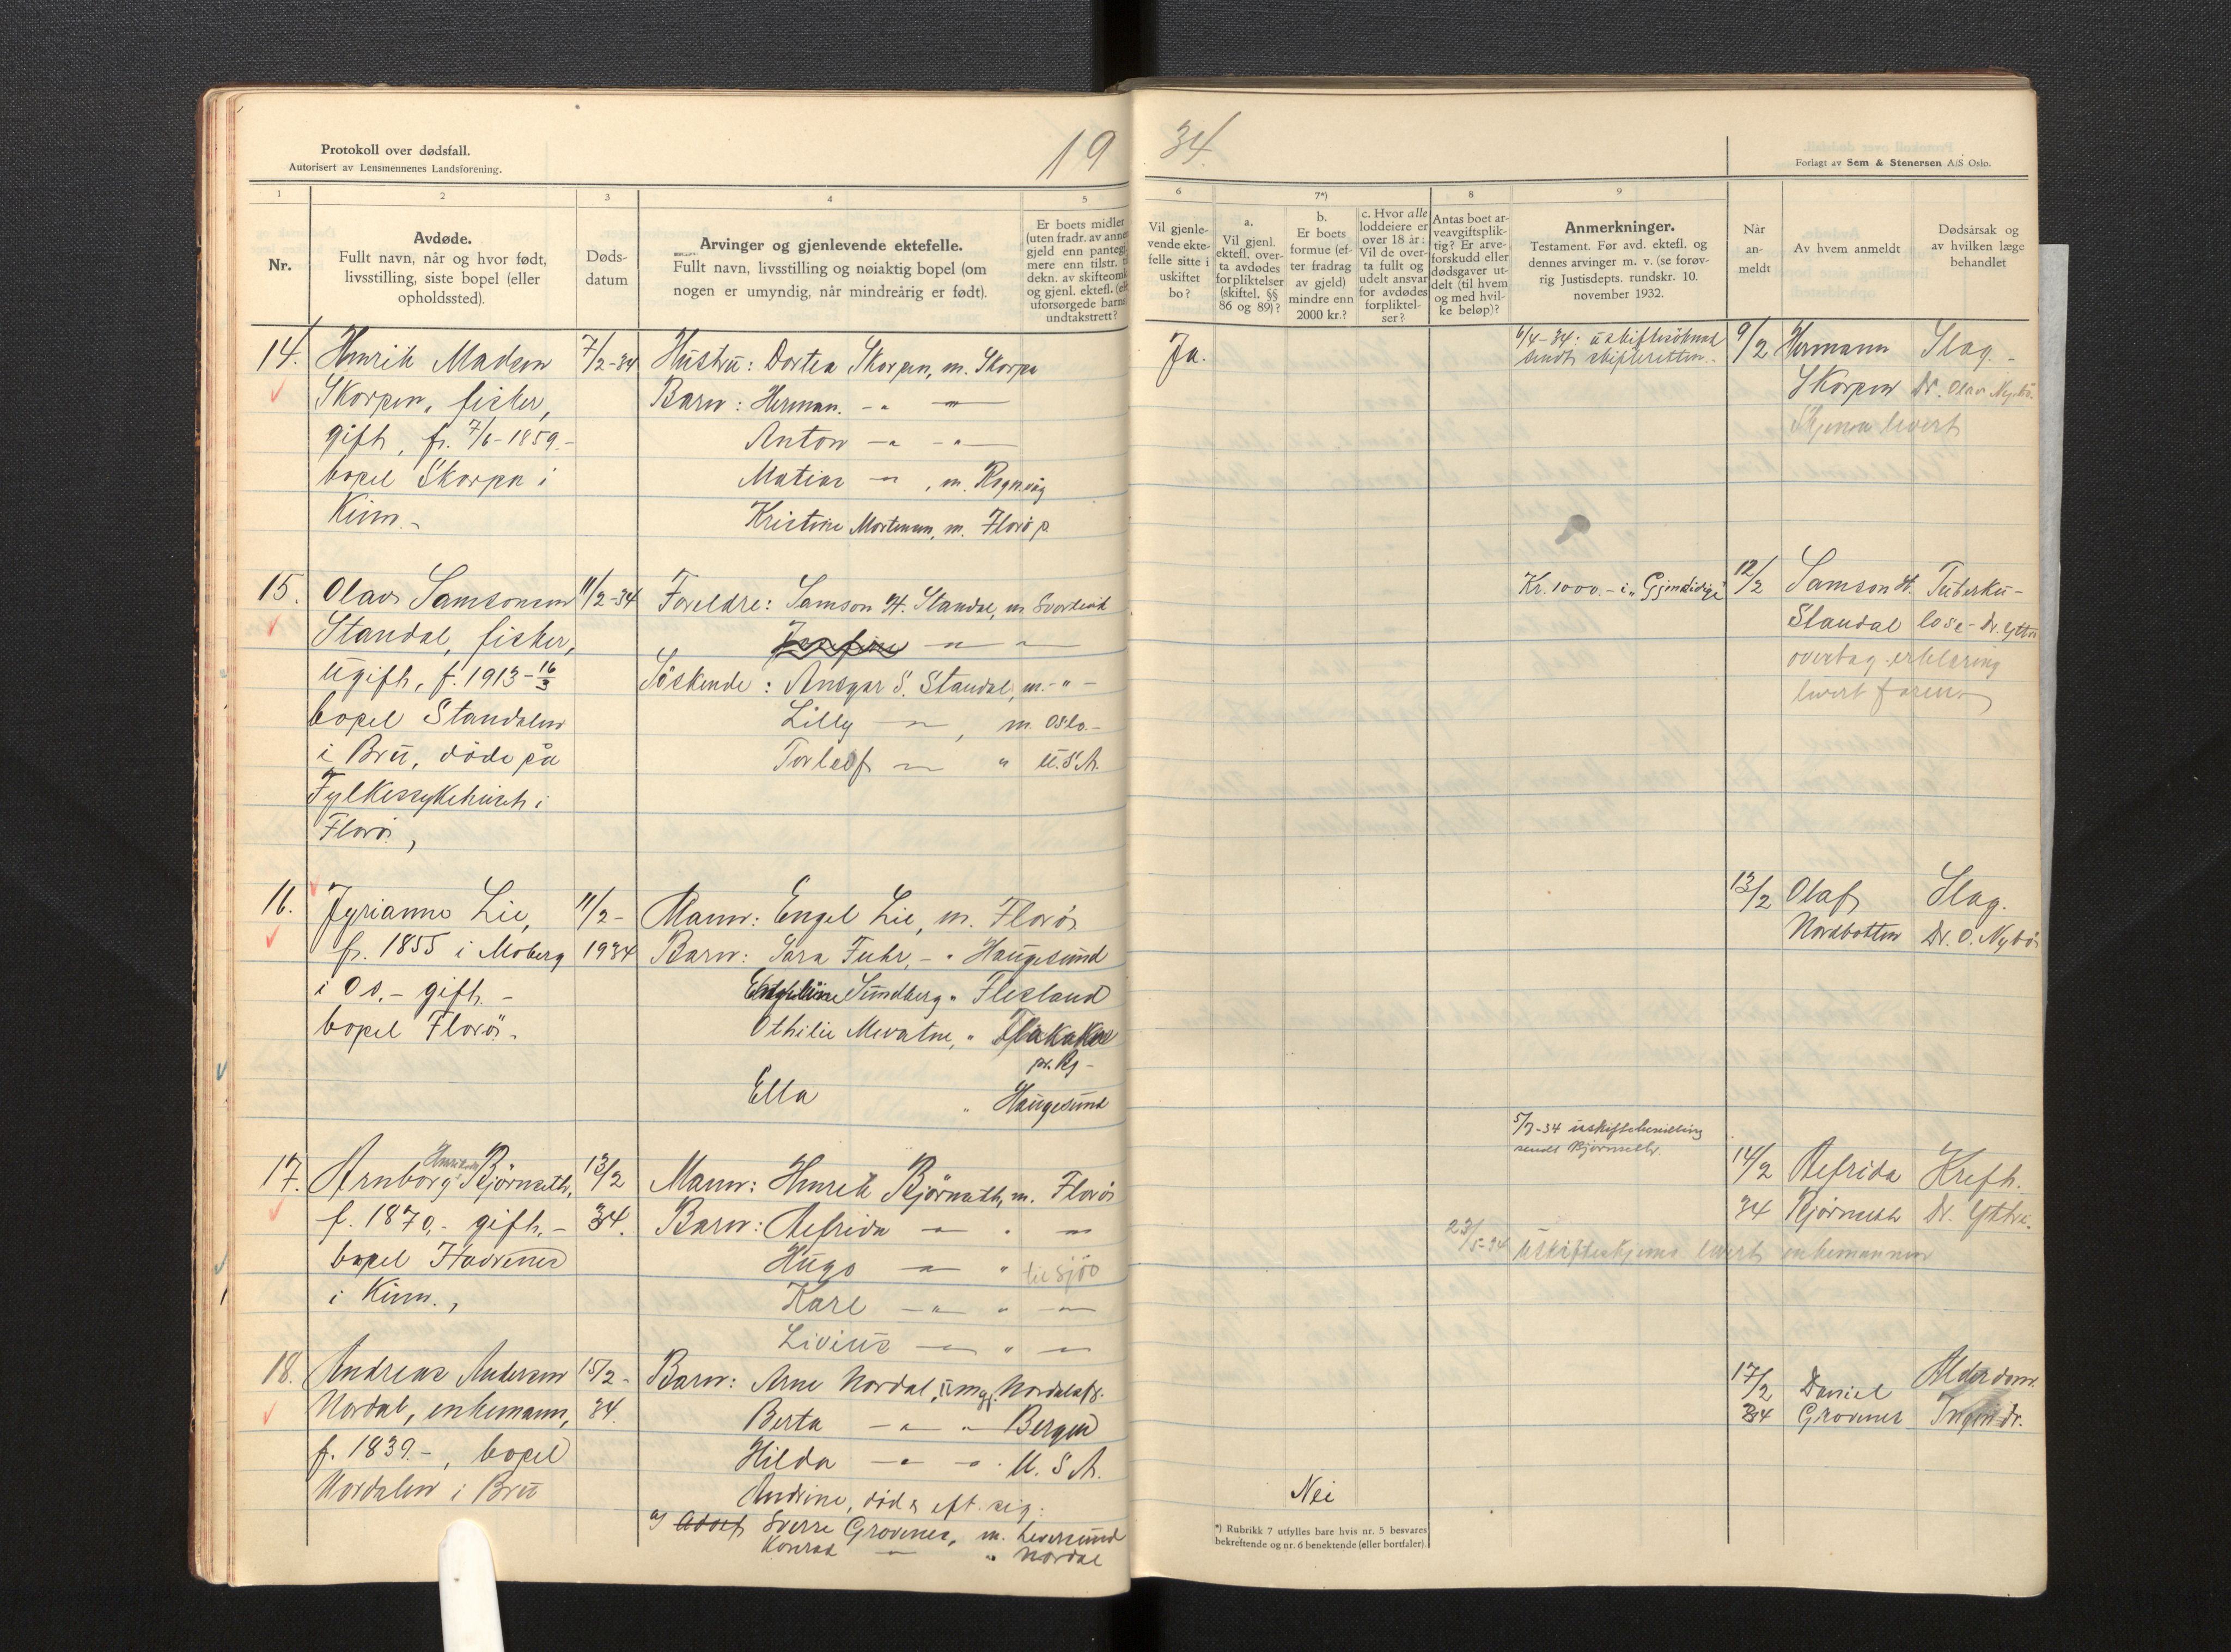 Protokoll over dødsfall.
Autorisert av Lensmennenes Landsforening.
19
34.
Forlagt av Sem & Stenersen A/S Oslo.
1
2
3
4
5
6
7*)
8
9
Nr.
Avdøde.
Fullt navn, når og hvor født,
livsstilling, siste bopel (eller
opholdssted).
Døds-
datum
Arvinger og gjenlevende ektefelle.
Fullt navn, livsstilling og nøiaktig bopel (om
nogen er umyndig, når mindreårig er født).
Er boets midler
(uten fradr. av annen
gjeld enn pantegj.
mere enn tilstr. t.
dekn. av skifteomk.
og gjenl. ektefl. (el.
uforsørgede barns
undtakstrett?
Vil gjenle-
vende ekte-
felle sitte i
uskiftet
bo?
a.
Vil gjenl.
ektefl. over-
ta avdødes
forpliktelser
(skiftel. §§
86 og 89)?
b.
Er boets
formue (ef-
ter fradrag
av gjeld)
mindre enn
2000 kr.?
c. Hvor alle
loddeiere er
over 18 år:
Vil de over-
ta fullt og
udelt ansvar
for avdødes
forpliktel-
ser?
Antas boet ar-
veavgiftsplik-
tig? Er arve-
forskudd eller
dødsgaver ut-
delt (til hvem
og med hvil-
ke beløp)?
Anmerkninger.
Testament. Før avd. ektefl. og
dennes arvinger m. v. (se forøv-
rig Justisdepts. rundskr. 10.
november 1932.
Når
an-
meldt
Av hvem anmeldt
Dødsårsak og
av hvilken læge
behandlet
14.
Henrik Madsen
Skorpen, fisker,
gift, f. 7/6-1859-
bopel Skorpa i
Kinn.-
7/2-34
Hustru: Dortea Skorpen, m. Skorpa
Barn: Herman. -"-
Anton -"- -"-
Matias -"-, m. Rognvåg
Kristine Mortensen, m. Florø p.
Ja.
6/4-34: uskiftesøknad
sendt skifteretten.-
9/2
Hermann
Skorpen
Skjema levert
Slag.-
Dr. Olav Nybø.
15.
Olav Samsonsen
Standal, fisker,
ugift, f. 1913-16/3
bopel Standalen
i Bru, døde på
Fylkessykehuset i
Florø,
11/2-34
Foreldre: Samson H. Standal, m. Svortevik
Søskende: Ansgar S. Standal, m. -"-
Lilly -"-, m. Oslo.-
Torleif -"- " U.S.A.
Kr. 1000.- i "Gjensidige"
12/2
Samson H.
Standal
overtag. erklæring
levert faren
Tuberku-
lose- Dr. Ytter
16.
Jyrianne Lie,
f. 1855 i Moberg
i Os.- gift.-
bopel Florø.-
11/2-
1934
Mann: Engel Lie, m. Florø
Barn: Sara Fuhr, -" Haugesund
Sundberg " Flesland
Othilie Mevatne, "
pr. Bg-
Ella " Haugesund
13/2
Olaf
Nordbotten
Slag.
Dr. O. Nybø
17.
Arnborg Bjørnseth,
f. 1870,- gift.-
bopel Havrenes
i Kinn.,
13/2
34.
Mann: Henrik Bjørnseth, m. Florø
Barn: Alfrida -"- " -"-
Hugo -"- " til sjøs
Karl -"- " -"-
Livius -"- " -"-
5/7-34 uskiftebevilling
sendt Bjørnseth.
23/5-34 uskifteskjema levert enkemannen
14/2
34
Alfrida
Bjørnseth
Kreft.
Dr. Ytter.
18.
Andreas Andersen
Nordal, enkemann,
f. 1839.-, bopel
Nordalen i Bru
15/2-
34.
Barn: Arne Nordal, Nordalsfj.
Berta -"- -"- Bergen
Hilda -"- -"- U.S.A.
Andrine, død & eft. sig:
a/ Adolf Sverre Grovenes, m. Leversund
Konrad -"- " Nordal
Nei
17/2
34
Daniel
Grovenes
Alderdom.
Ingen dr.
*) Rubrikk 7 utfylles bare hvis nr. 5 besvares
bekreftende og nr. 6 benektende (eller bortfaler).